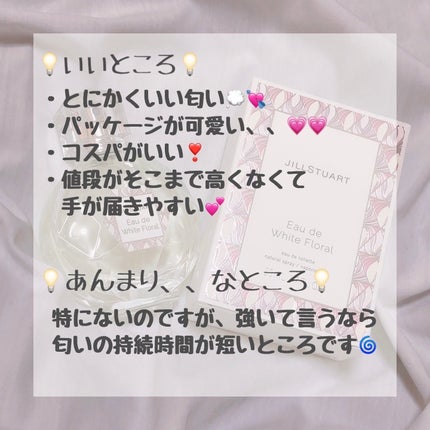 💡いいところ💡
・とにかくいい匂い💭💘
・パッケージが可愛い、、💗💗
・コスパがいい❣️
・値段がそこまで高くなくて
手が届きやすい💕
JILL STUART
Eau de
White Floral
eau de toilette
Eau de
White Floral
💡あんまり、、なところ💡
特にないのですが、強いて言うなら
匂いの持続時間が短いところです🌀